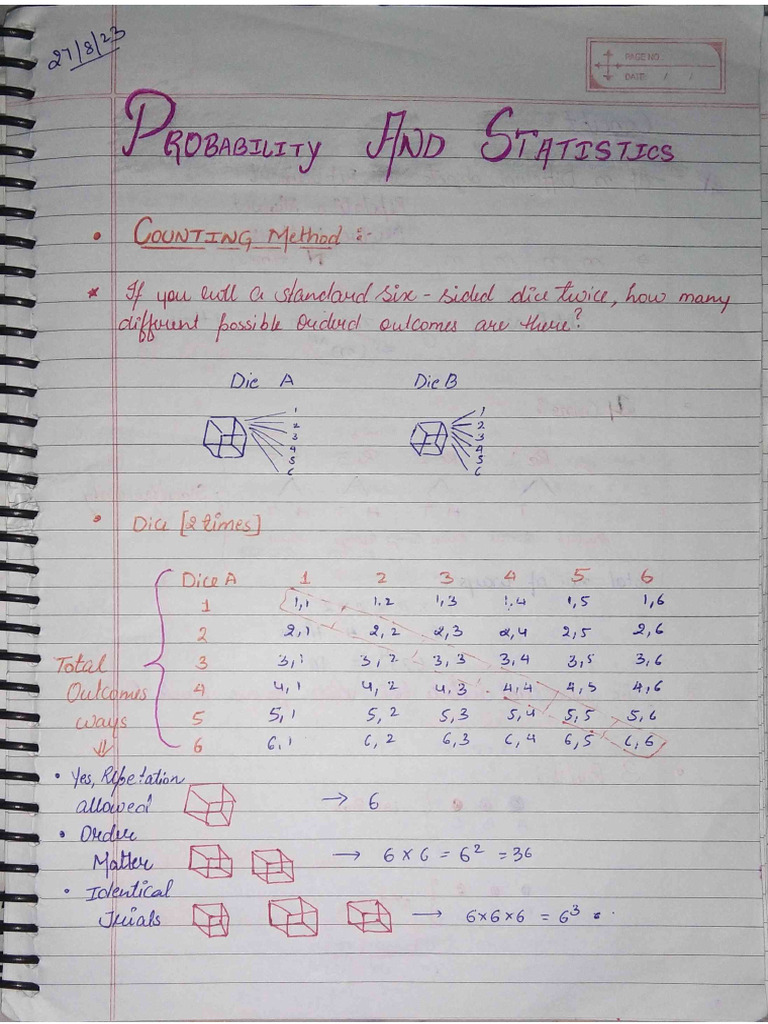 27/8/23
PAGE NO
DATE: / /
PROBABILITY AND STATISTICS
• COUNTING Method :-
* If you roll a standard six-sided dice twice, how many
different possible Orderd outcomes are there?
Die A Die B
1 1
2 2
3 3
4 4
5 5
6 6
• Dice [2 times]
Dice A 1 2 3 4 5 6
1 1,1 1,2 1,3 1,4 1,5 1,6
2 2,1 2,2 2,3 2,4 2,5 2,6
3 3,1 3,2 3,3 3,4 3,5 3,6
4 4,1 4,2 4,3 4,4 4,5 4,6
5 5,1 5,2 5,3 5,4 5,5 5,6
6 6,1 6,2 6,3 6,4 6,5 6,6
Total
Outcomes
ways
⇓
• Yes, Repetation
allowed → 6
• Order
Matter → 6 × 6 = 6² = 36
• Identical
Trials → 6×6×6 = 6³